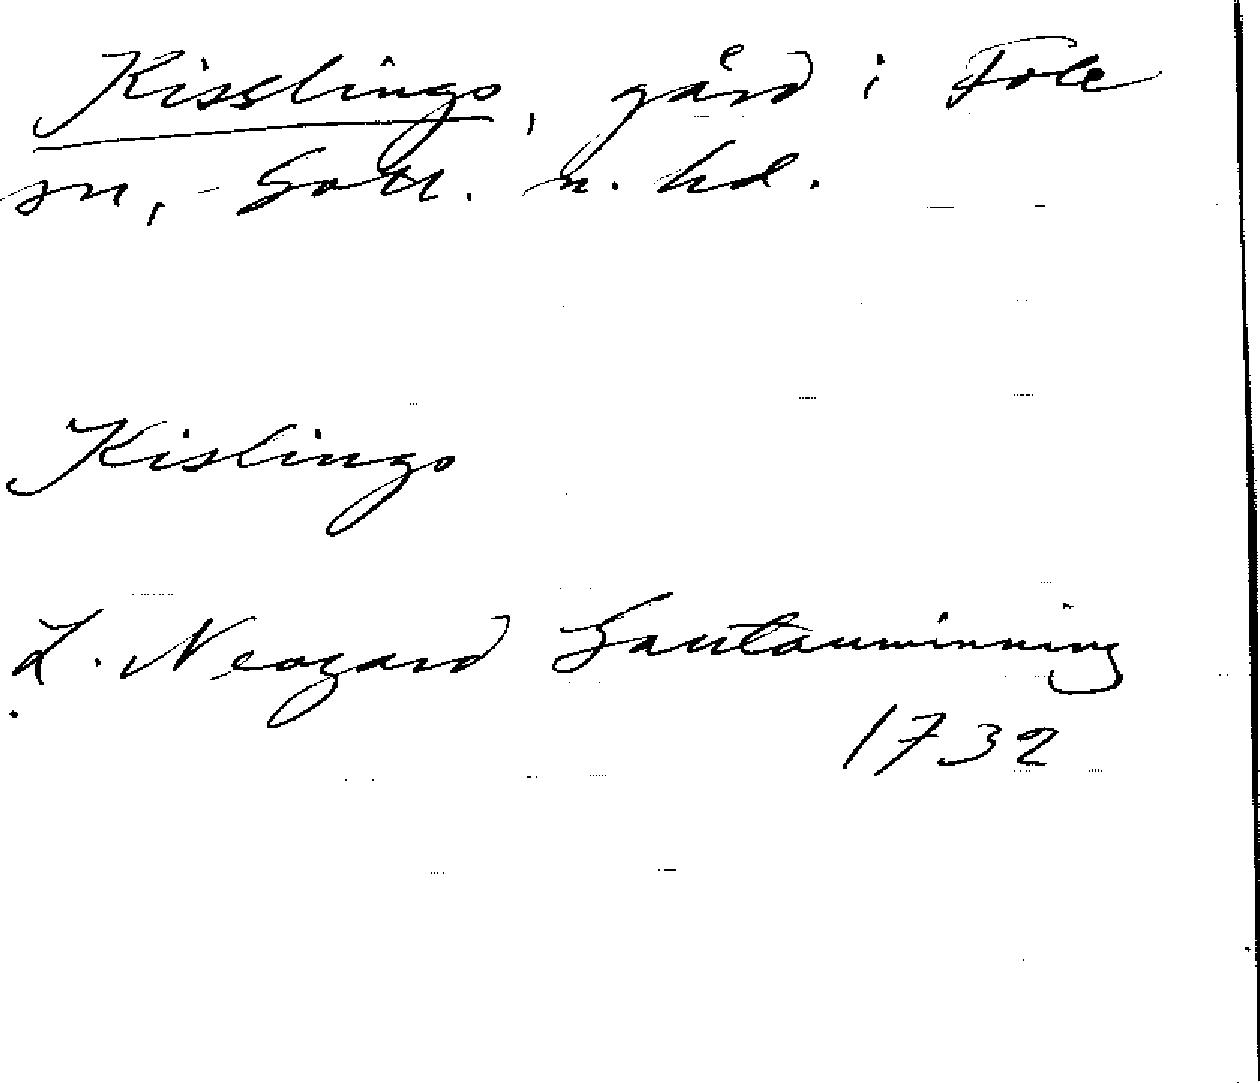 Kisslings, gård i Fole
sn, Gotl. n. hd.
Kislings
L. Neogard Gautauminning
1732